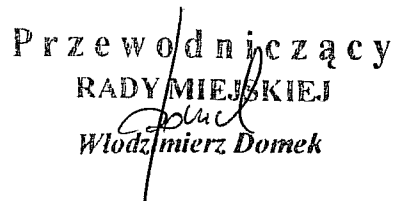 Przewodniczący
RADY MIEJSKIEJ
Włodzimierz Domek